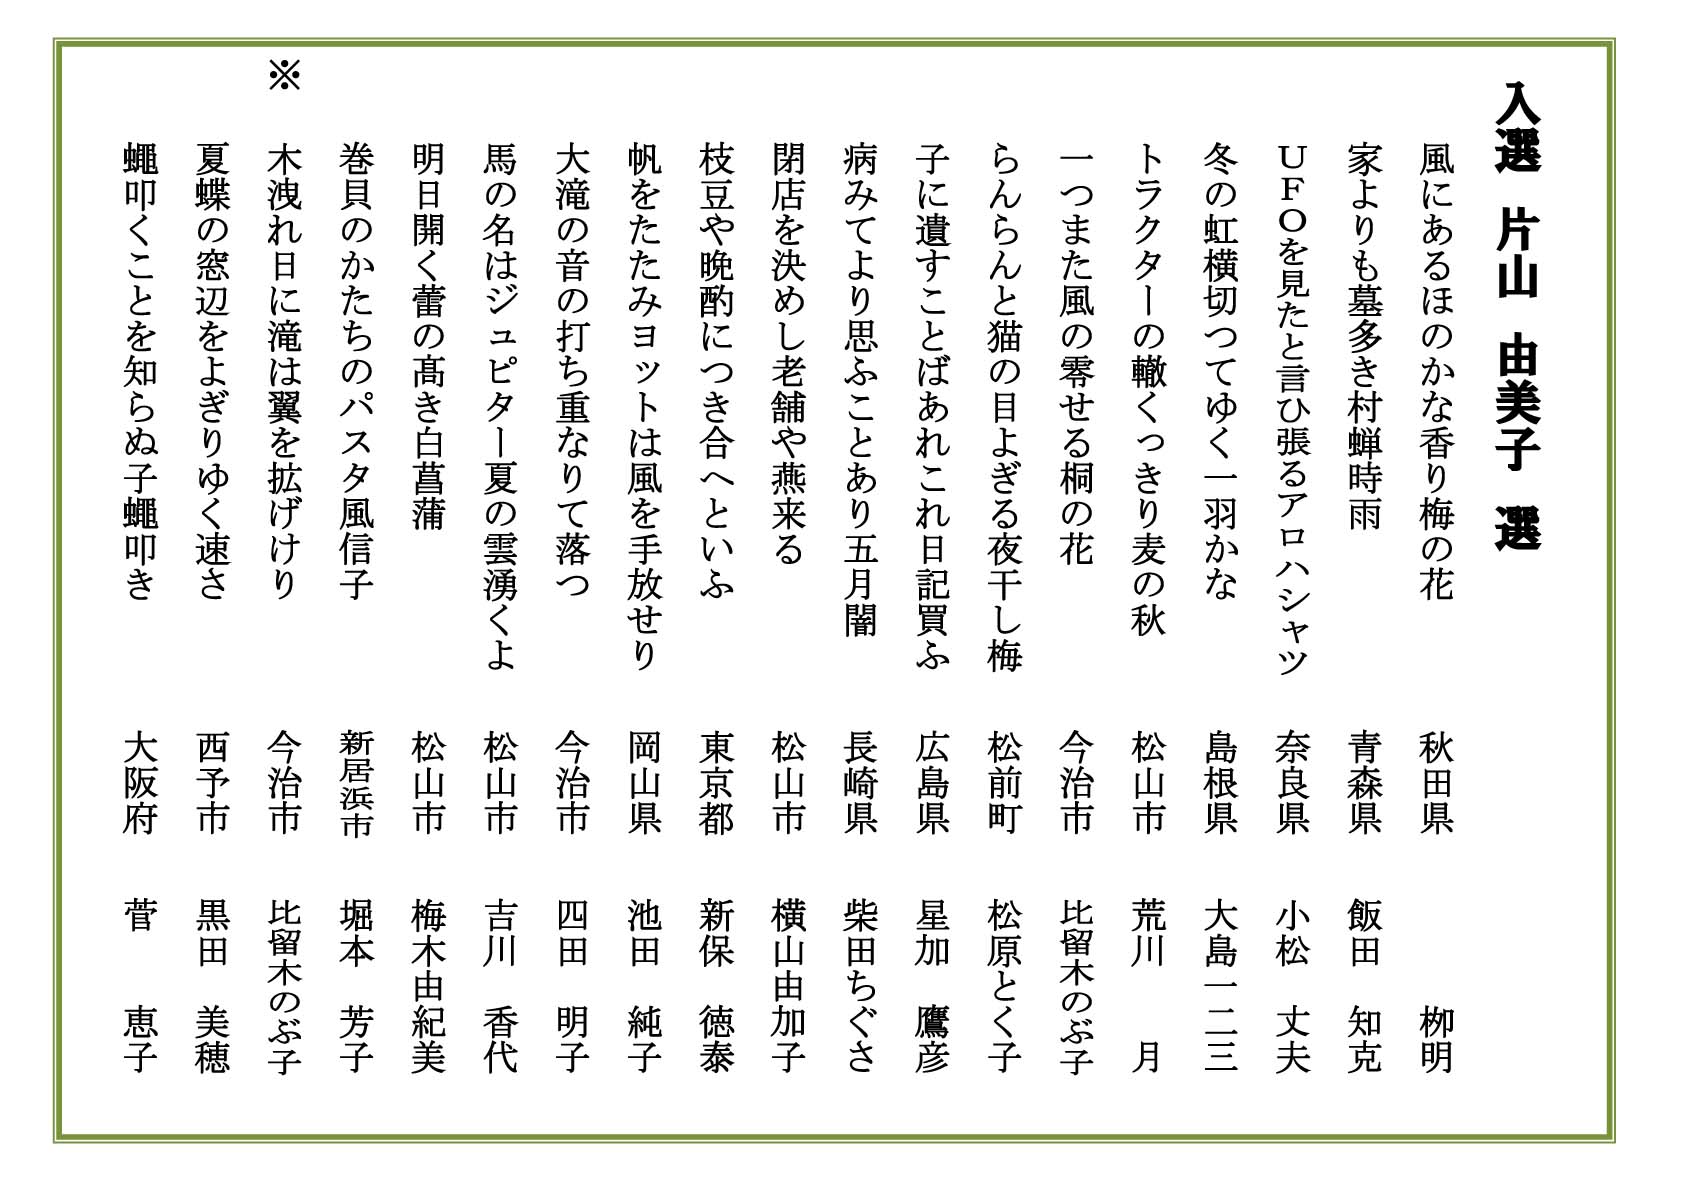 入選 片山 由美子 選
風にあるほのかな香り梅の花 秋田県 栁明
家よりも墓多き村蝉時雨 青森県 飯田 知克
ＵＦＯを見たと言ひ張るアロハシャツ 奈良県 小松 丈夫
冬の虹横切つてゆく一羽かな 島根県 大島一二三
トラクターの轍くっきり麦の秋 松山市 荒川 月
一つまた風の零せる桐の花 今治市 比留木のぶ子
らんらんと猫の目よぎる夜干し梅 松前町 松原とく子
子に遺すことばあれこれ日記買ふ 広島県 星加 鷹彦
病みてより思ふことあり五月闇 長崎県 柴田ちぐさ
閉店を決めし老舗や燕来る 松山市 横山由加子
枝豆や晩酌につき合へといふ 東京都 新保 徳泰
帆をたたみヨットは風を手放せり 岡山県 池田 純子
大滝の音の打ち重なりて落つ 今治市 四田 明子
馬の名はジュピター夏の雲湧くよ 松山市 吉川 香代
明日開く蕾の髙き白菖蒲 松山市 梅木由紀美
巻貝のかたちのパスタ風信子 新居浜市 堀本 芳子
※ 木洩れ日に滝は翼を拡げけり 今治市 比留木のぶ子
夏蝶の窓辺をよぎりゆく速さ 西予市 黒田 美穂
蠅叩くことを知らぬ子蠅叩き 大阪府 菅 恵子